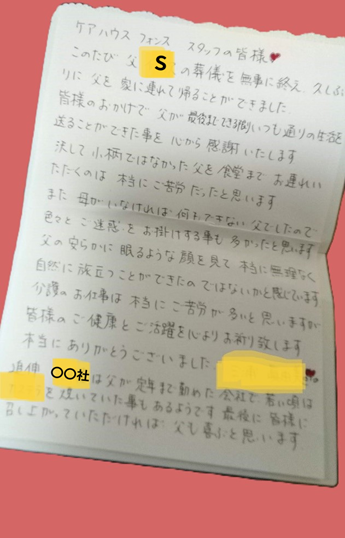 ケアハウス フォンス スタッフの皆様♥
このたび 父 S の葬儀を無事に終え 久しぶ
りに 父を 家に連れて帰ることができました
皆様のおかげで 父が 最後まで できる限り いつも通りの生活を
送ることができた事を 心から 感謝いたします
決して 小柄ではなかった 父を 食堂まで お連れい
ただくのは 本当にご苦労だったと思います
また 母がいなければ 何もできない父でしたので
色々と ご迷惑をお掛けする事も 多かったと思います
父の安らかに 眠るような 顔を見て 本当に無理なく
自然に 旅立つことができたのではないかと感じています
介護のお仕事は 本当に ご苦労が多いと思いますが
皆様のご健康と ご活躍を心よりお祈り致します
本当にありがとうございました
追伸 〇〇社 は父が定年まで勤めた会社で 若い頃は
を焼いていた事もあるようです 最後に 皆様に
召し上がっていただければ 父も喜ぶと思います